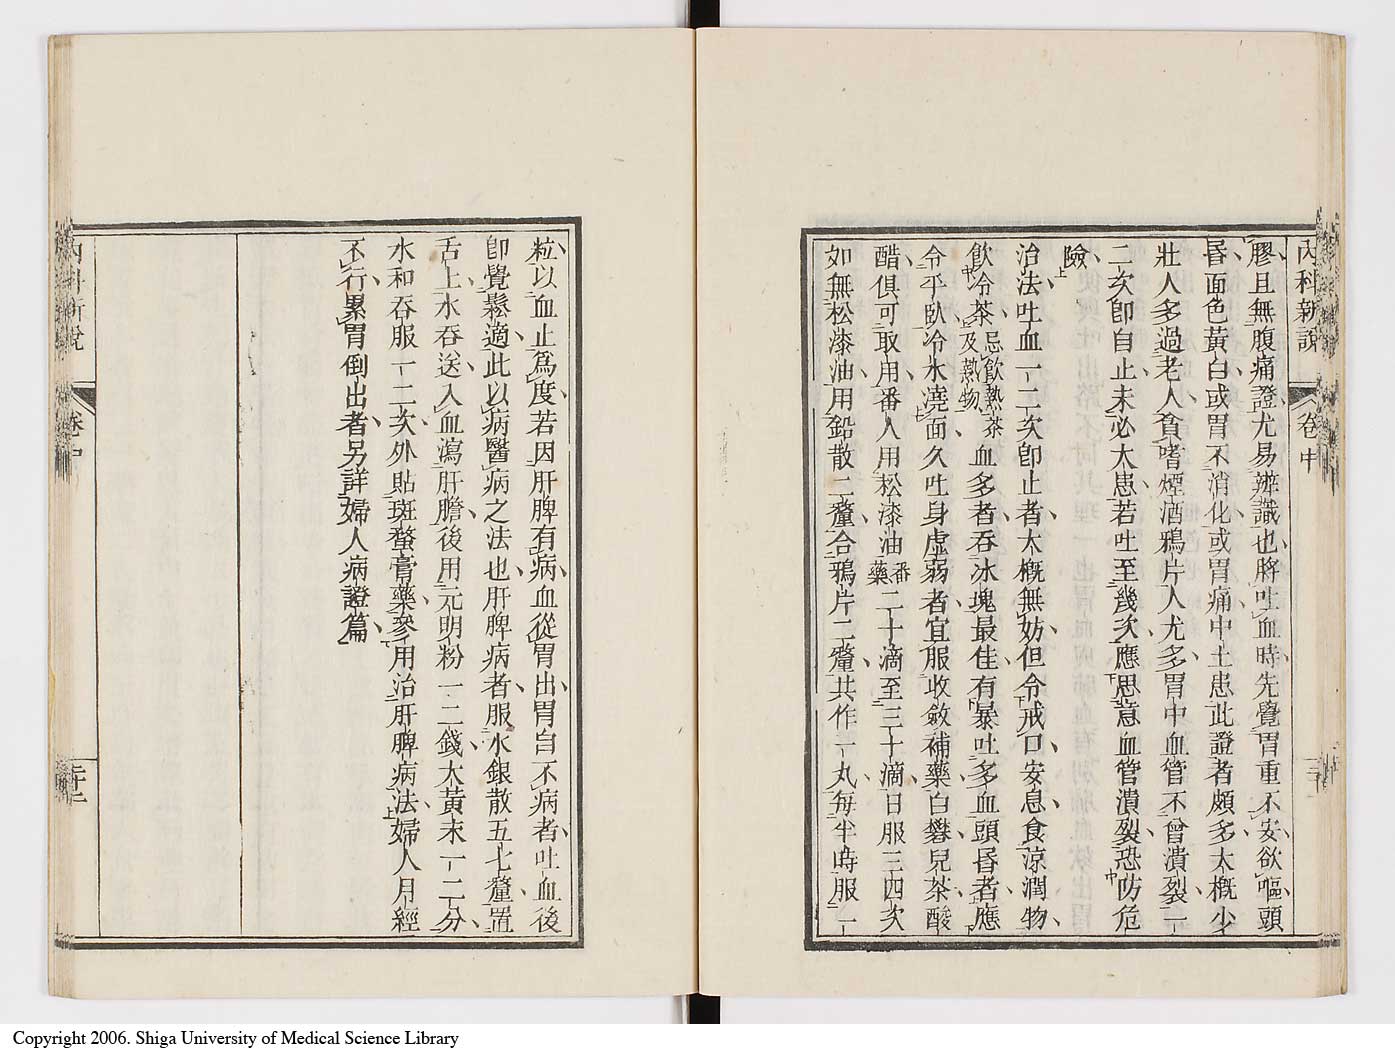 內科新說
卷中
膠且無腹痛證尤易辨識也將吐血時先覺胃重不安欲嘔頭
昏面色黃白或胃不消化或胃痛中土患此證者頗多大概少
壯人多過老人貪嗜煙酒鴉片人尤多胃中血管不曾潰裂一
二次卽自止未必大患若吐至幾次應思意血管潰裂恐防危
險
治法吐血一二次卽止者大概無妨但令戒口安息食涼潤物
飲冷茶忌飲熱茶及熱物血多者吞冰塊最佳有暴吐多血頭昏者應
令平臥冷水澆面久吐身虛弱者宜服收斂補藥白礬兒茶酸
醋俱可取用番人用松漆油番藥二十滴至三十滴日服三四次
如無松漆油用鉛散二釐合鴉片二釐共作一丸每半時服一
粒以血止爲度若因肝脾有病血從胃出胃自不病者吐血後
卽覺鬆適此以病醫病之法也肝脾病者服水銀散五七釐置
舌上水吞送入血瀉肝膽後用元明粉一二錢大黃末一二分
水和吞服一二次外貼斑蝥膏藥參用治肝脾病法婦人月經
不行累胃倒出者另詳婦人病證篇
內科新說
卷中
Copyright 2006. Shiga University of Medical Science Library